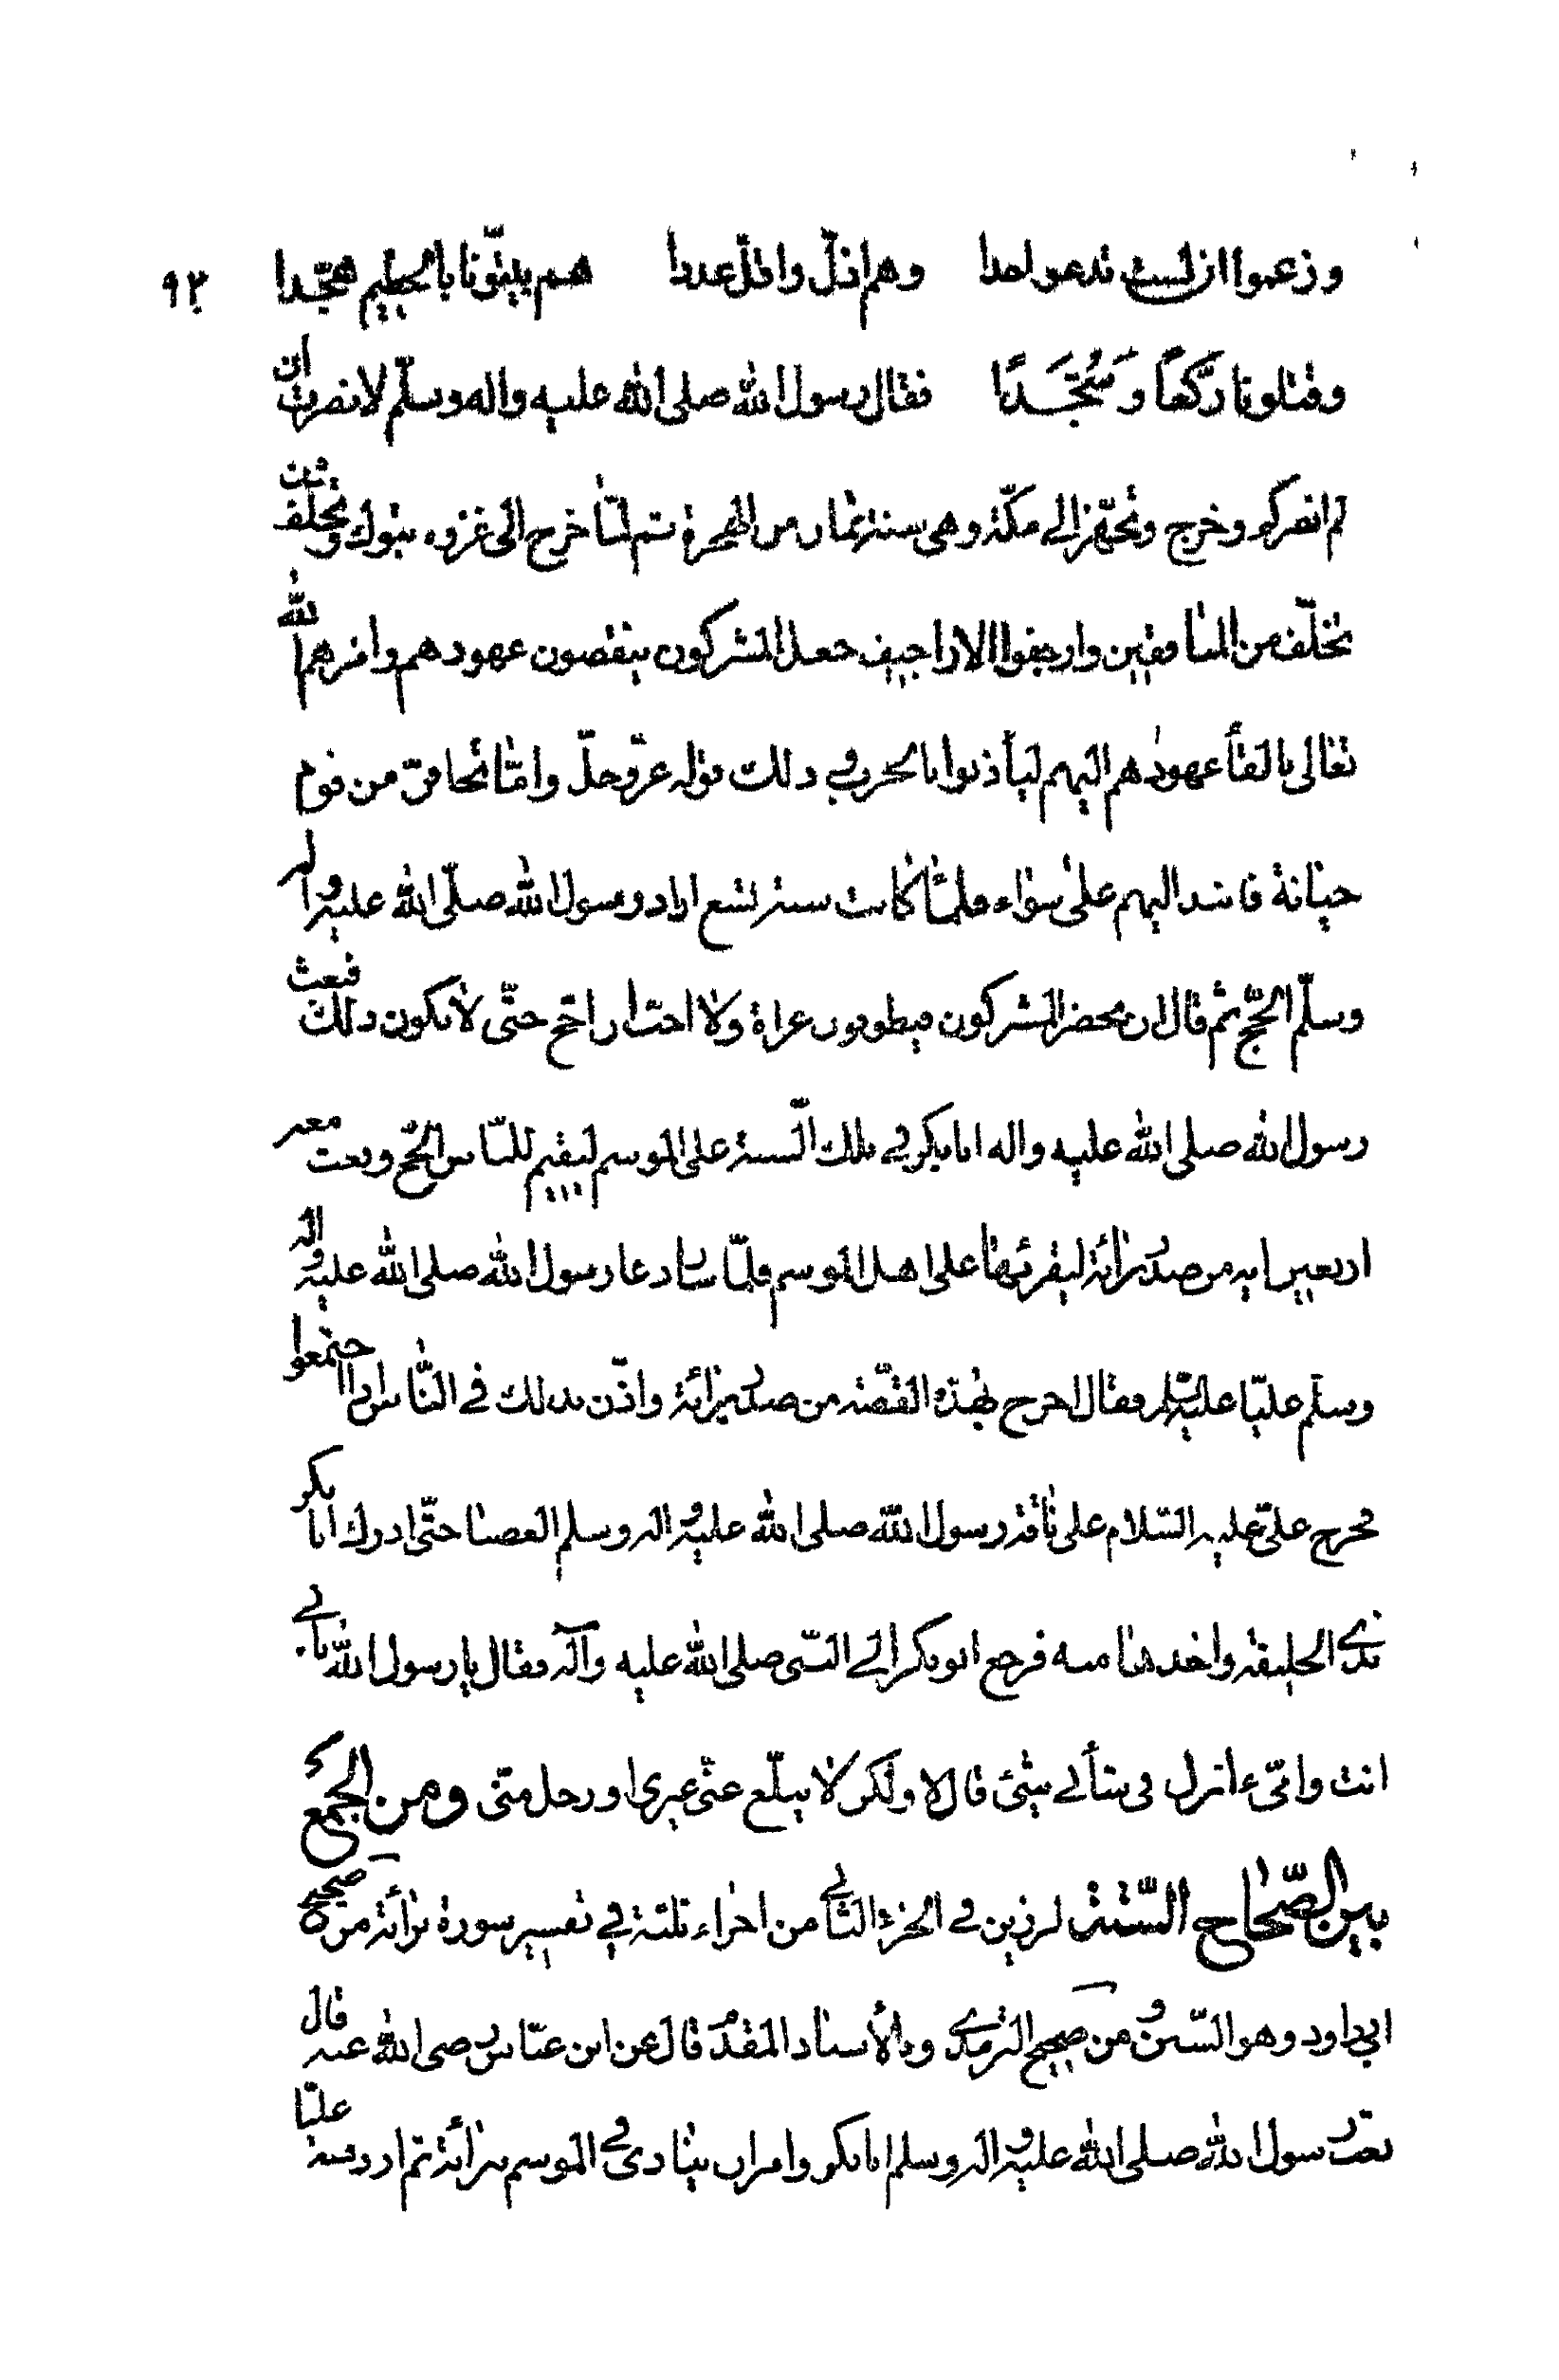 وزعموا ان لست تدعو احدا وهم اذلّ واقلّ عددا هم بيتّونا بالحطيم هجّدا ٩٢
وقتلونا ركّعاً وَسُجَّدًا فقال رسول الله صلى الله عليه واله وسلّم لا نصرت ان
لم انصركم وخرج وتجهّز الى مكّة وهى سنة ثمان من الهجرة ثم لمّا خرج الى غزوه تبوك وتخلّف من
تخلّف من المنافقين وارجفوا الاراجيف جعل المشركون ينقضون عهودهم وامرهم الله
تعالى بالقأ عهودهم اليهم ليأذنوا بالحرب وفي ذلك قوله عزّوجلّ وامّا تخافنّ من قوم
خيانة فانبذ اليهم على سواء فلمّا كانت سنة تسع اراد رسول الله صلّى الله عليه واله
وسلّم الحجّ ثم قال انه يحضر المشركون فيطوفون عراة ولا احبّ ان احجّ حتّى لا يكون ذلك فبعث
رسول الله صلى الله عليه واله ابا بكر في تلك السنة على الموسم ليقيم للنّاس الحجّ وبعث معه
اربعين ايه من صدر برائة ليقرئها على اهل الموسم فلمّا سار دعا رسول الله صلى الله عليه واله
وسلّم عليّا عليه السّلم فقال اخرج بهذه القصّة من صدر برائة واذّن بذلك في النّاس اذا اجتمعوا
فخرج علىّ عليه السّلام على ناقة رسول اللّه صلى الله عليه واله وسلم العضبا حتّى ادرك ابا بكر
بذي الحليفة واخذها منه فرجع ابو بكر الي النّبى صلى الله عليه وآله فقال يا رسول اللّه بابي
انت وامّى ءانزل فى شأني شئ قال لا ولكن لا يبلّغ عنّى غيرى او رجل منّى ومن الجمع
بين الصّحاح السّتة لرزين في الجزء الثّاني من اجزاء ثلثة في تفسير سورة برأئة من صحيح
ابي داود وهو السّنن ومن صحيح الترمذي وبالأسناد المقدّم قال عن ابن عبّاس رضى الله عنه قال
بعث رسول الله صلى الله عليه واله وسلم ابا بكر وامره ان ينادى في الموسم ببرائة ثم اردفه عليّا